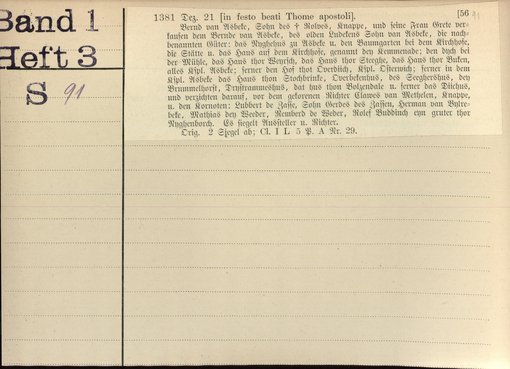 Band 1
Heft 3
S 91
[56
91
1381 Dez. 21 [in festo beati Thome apostoli].
Bernd van Asbeke, Sohn des † Rolves, Knappe, und seine Frau Grete ver-
kaufen dem Bernde van Asbeke, des olden Ludekens Sohn van Asbeke, die nach-
benannten Güter: das Nyghehus zu Asbeke u. den Baumgarten bei dem Kirchhofe,
die Stätte u. das Haus auf dem Kirchhofe, genannt dey Kemmenade; den dych bei
der Mühle, das Haus thor Weysch, das Haus thor Steeghe, das Haus thor Buken,
alles Kspl. Asbeke; ferner den Hof thot Overdiick, Kspl. Osterwich; ferner in dem
Kspl. Asbeke das Haus thon Stochbrinke, Overbekenhus, des Steeghershus, dey
Brummelhorst, Drystrammeshus, dat hus thon Bolzendale u. ferner das Düchus,
und verzichten darauf, vor dem gekorenen Richter Clawes van Methelen, Knappe,
u. den Kornoten: Lubbert de Zasse, Sohn Gerdes des Zassen, Herman van Bylre-
beke, Mathias dey Weeder, Rembert de Weder, Rolef Buddinch eyn gruter thor
Nyghenborch. Es siegelt Aussteller u. Richter.
Orig. 2 Siegel ab; Cl. I L 5 P. A Nr. 29.